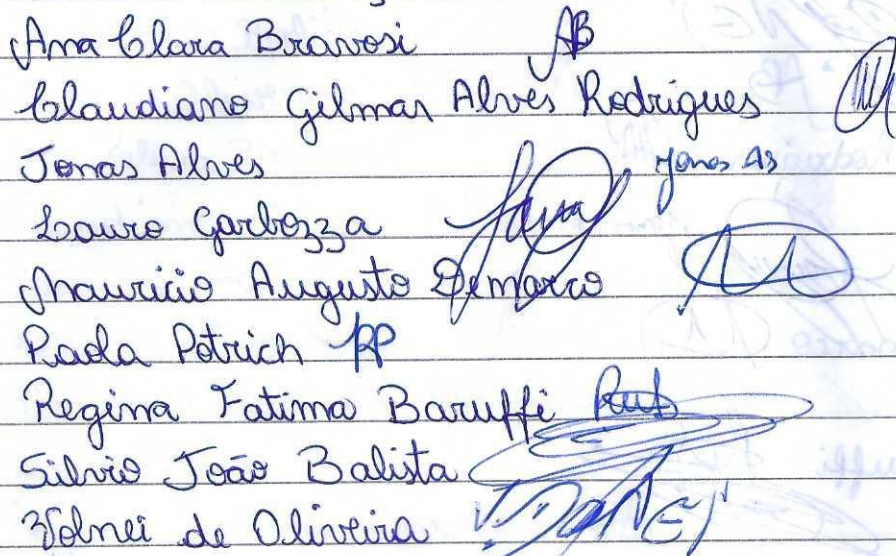 Ana Clara Bravosi AB
Claudiano Gilmar Alves Rodrigues
Jonas Alves Jonas AB
Lauro Garbozza
Mauricio Augusto Demarco
Paola Petrich PP
Regina Fatima Baruffi
Silvio João Balista
Volnei de Oliveira